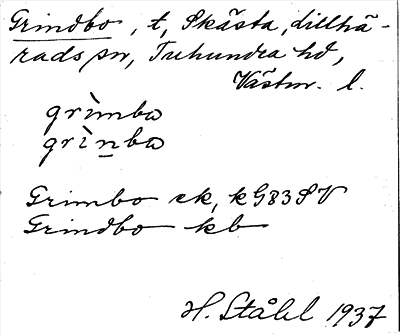 Grindbo, t, Skästa, Lillhä-
rads sn, Tuhundra hd,
Västm. l.
grìmba
grìnba
Grimbo ek, k G83SV
Grindbo kb
H. Ståhl 1937